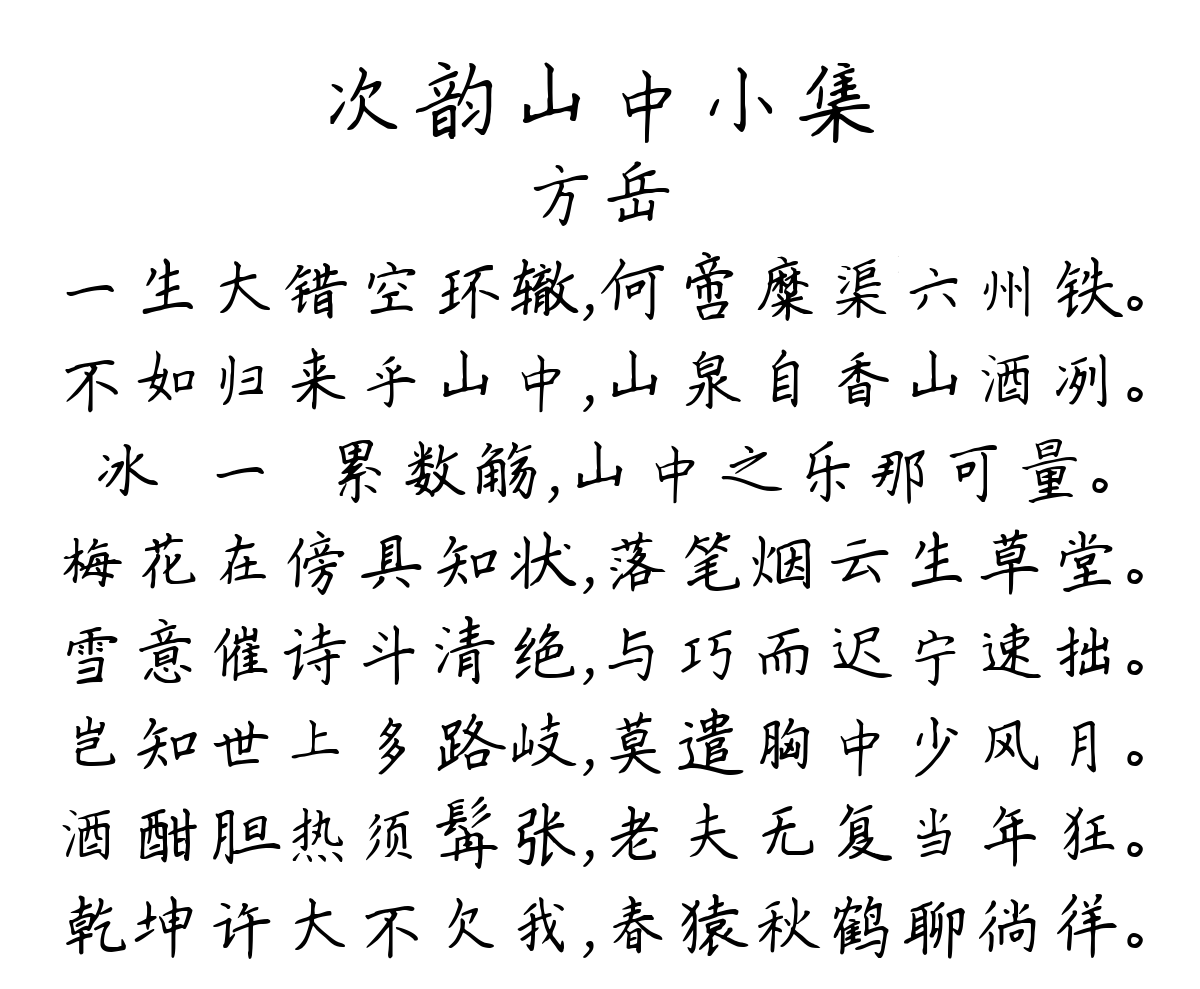 次韵山中小集
方岳
一生大错空环辙,何啻糜渠六州铁。
不如归来乎山中,山泉自香山酒冽。
冰 一 累数觞,山中之乐那可量。
梅花在傍具知状,落笔烟云生草堂。
雪意催诗斗清绝,与巧而迟宁速拙。
岂知世上多路歧,莫遣胸中少风月。
酒酣胆热须髯张,老夫无复当年狂。
乾坤许大不欠我,春猿秋鹤聊徜徉。